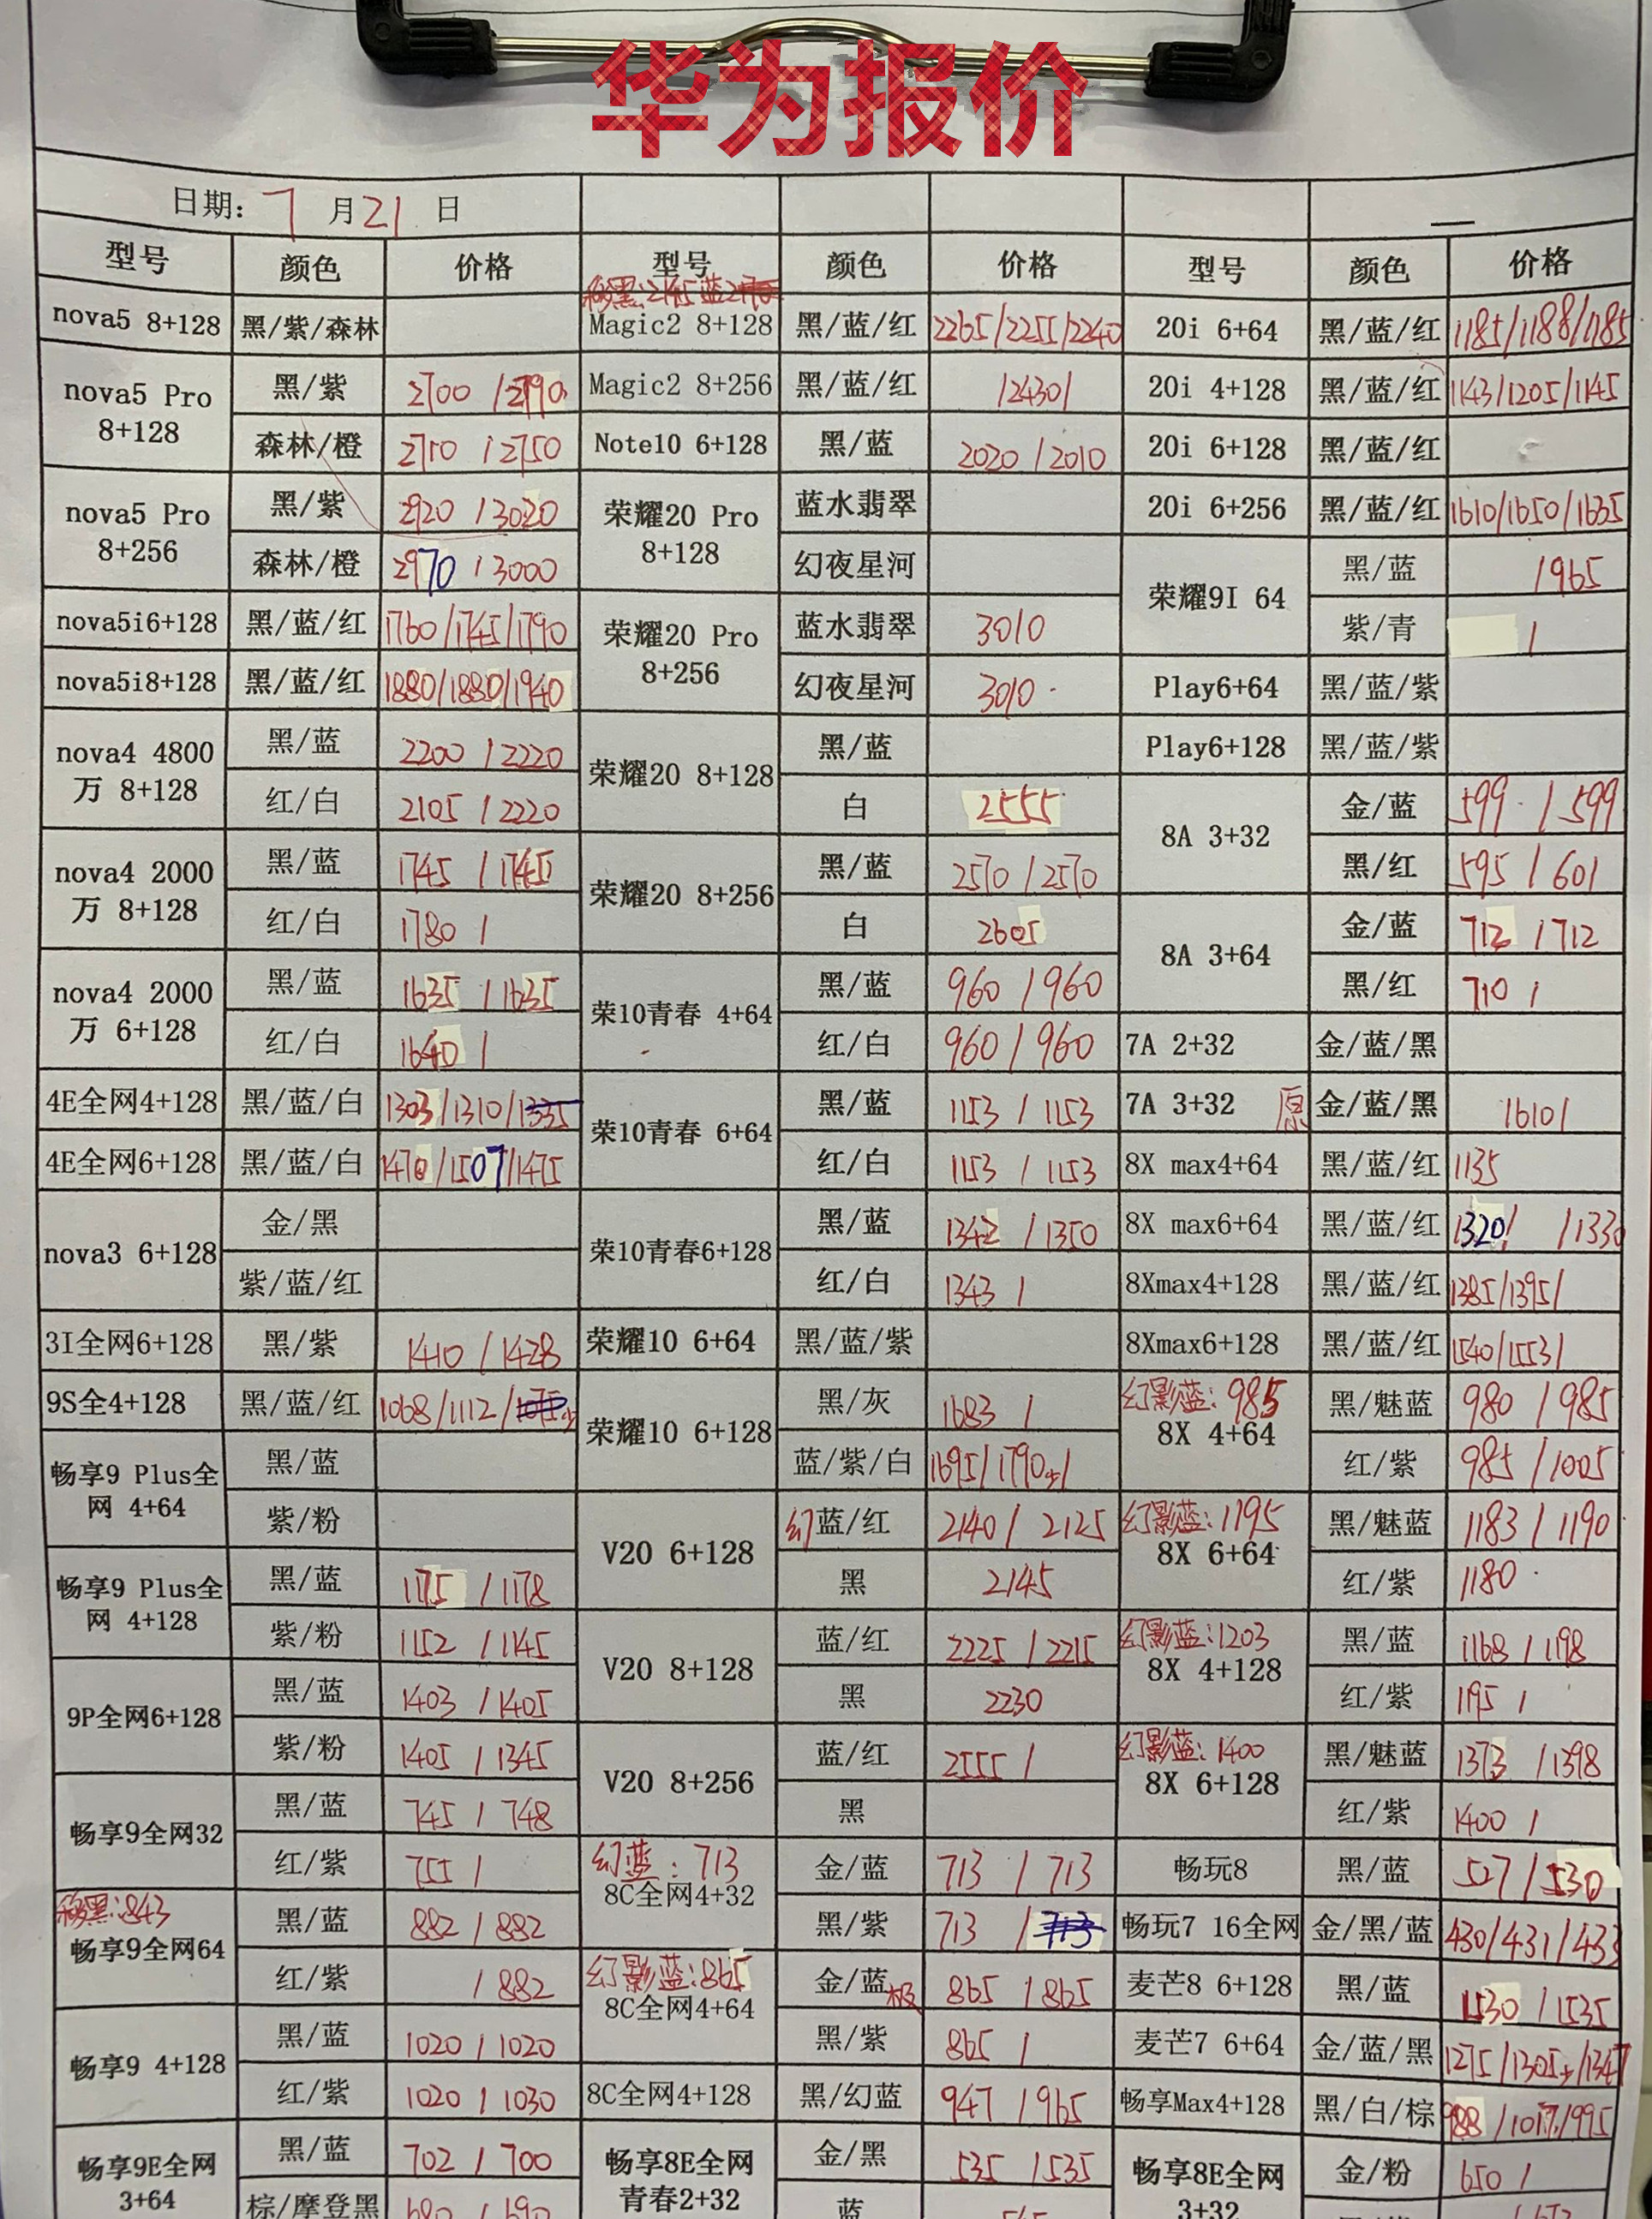 华为报价
日期: 7 月 21 日
型号 颜色 价格 型号 颜色 价格 型号 颜色 价格
nova5 8+128 黑/紫/森林
nova5 Pro 8+128 黑/紫 2700 /2790
森林/橙 2710 /2750
nova5 Pro 8+256 黑/紫 2920 /3020
森林/橙 2970 /3000
nova5i6+128 黑/蓝/红 1760/1745/1790
nova5i8+128 黑/蓝/红 1880/1880/1940
nova4 4800万 8+128 黑/蓝 2200 /2220
红/白 2105 /2220
nova4 2000万 8+128 黑/蓝 1745 /1745
红/白 1780 /
nova4 2000万 6+128 黑/蓝 1635 /1635
红/白 1640 /
4E全网4+128 黑/蓝/白 1303/1310/1335
4E全网6+128 黑/蓝/白 1470/1507/1475
nova3 6+128 金/黑
紫/蓝/红
3I全网6+128 黑/紫 1410 /1428
9S全4+128 黑/蓝/红 1068/1112/1075少
畅享9 Plus全网 4+64 黑/蓝
紫/粉
畅享9 Plus全网 4+128 黑/蓝 1175 /1178
紫/粉 1152 /1145
9P全网6+128 黑/蓝 1403 /1405
紫/粉 1405 /1345
畅享9全网32 黑/蓝 745 / 748
红/紫 755 /
移黑:843
畅享9全网64 黑/蓝 882 / 882
红/紫 / 882
畅享9 4+128 黑/蓝 1020 / 1020
红/紫 1020 / 1030
畅享9E全网 3+64 黑/蓝 702 / 700
棕/摩登黑 680 / 690
Magic2 8+128 黑/蓝/红 2265/2255/2240
Magic2 8+256 黑/蓝/红 /2430/
Note10 6+128 黑/蓝 2020 /2010
荣耀20 Pro 8+128 蓝水翡翠
幻夜星河
荣耀20 Pro 8+256 蓝水翡翠 3010
幻夜星河 3010
荣耀20 8+128 黑/蓝
白 2555
荣耀20 8+256 黑/蓝 2570 /2570
白 2605
荣10青春 4+64 黑/蓝 960 /960
红/白 960 / 960
荣10青春 6+64 黑/蓝 1153 / 1153
红/白 1153 / 1153
荣10青春6+128 黑/蓝 1342 /1350
红/白 1343 /
荣耀10 6+64 黑/蓝/紫
荣耀10 6+128 黑/灰 1683 /
蓝/紫/白 1695/1790少/
V20 6+128 幻蓝/红 2140/ 2125
黑 2145
V20 8+128 蓝/红 2225 /2215
黑 2230
V20 8+256 蓝/红 2555 /
黑
幻蓝: 713
8C全网4+32 金/蓝 713 / 713
黑/紫 713 /713
幻影蓝:865
8C全网4+64 金/蓝极 865 /865
黑/紫 865 /
8C全网4+128 黑/幻蓝 947 /965
畅享8E全网青春2+32 金/黑 535 /535
蓝
20i 6+64 黑/蓝/红 1185/1188/1185
20i 4+128 黑/蓝/红 1143/1205/1145
20i 6+128 黑/蓝/红
20i 6+256 黑/蓝/红 1610/1650/1635
荣耀9I 64 黑/蓝 /965
紫/青 /
Play6+64 黑/蓝/紫
Play6+128 黑/蓝/紫
8A 3+32 金/蓝 599 / 599
黑/红 595 / 601
8A 3+64 金/蓝 712 /712
黑/红 710 /
7A 2+32 金/蓝/黑
7A 3+32 原 金/蓝/黑 /610/
8X max4+64 黑/蓝/红 1135
8X max6+64 黑/蓝/红 1320/ /1330
8Xmax4+128 黑/蓝/红 1385/1395/
8Xmax6+128 黑/蓝/红 1540/1553/
幻影蓝:985
8X 4+64 黑/魅蓝 980 /985
红/紫 985 /1005
幻影蓝:1195
8X 6+64 黑/魅蓝 1183 /1190
红/紫 1180
幻影蓝:1203
8X 4+128 黑/蓝 1168 / 1198
红/紫 1195 /
幻影蓝: 1400
8X 6+128 黑/魅蓝 1373 /1398
红/紫 1400 /
畅玩8 黑/蓝 527 /530
畅玩7 16全网 金/黑/蓝 430/431/433
麦芒8 6+128 黑/蓝 1530 /1535
麦芒7 6+64 金/蓝/黑 1275/1305少/1347
畅享Max4+128 黑/白/棕 988 /1017/995
畅享8E全网 3+32 金/粉 650 /